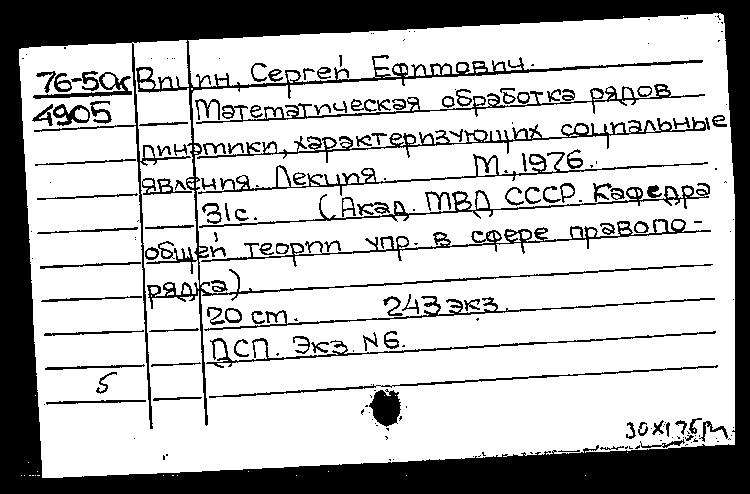 76-50к Вицин, Сергей Ефимович.
4905 Математическая обработка рядов
динамики, характеризующих социальные
явления. Лекция. М., 1976.
31с. (Акад. МВД СССР. Кафедра
общей теории упр. в сфере правопо-
рядка).
20 см. 243 экз.
ДСП. Экз. N6.
5
30 XI 76